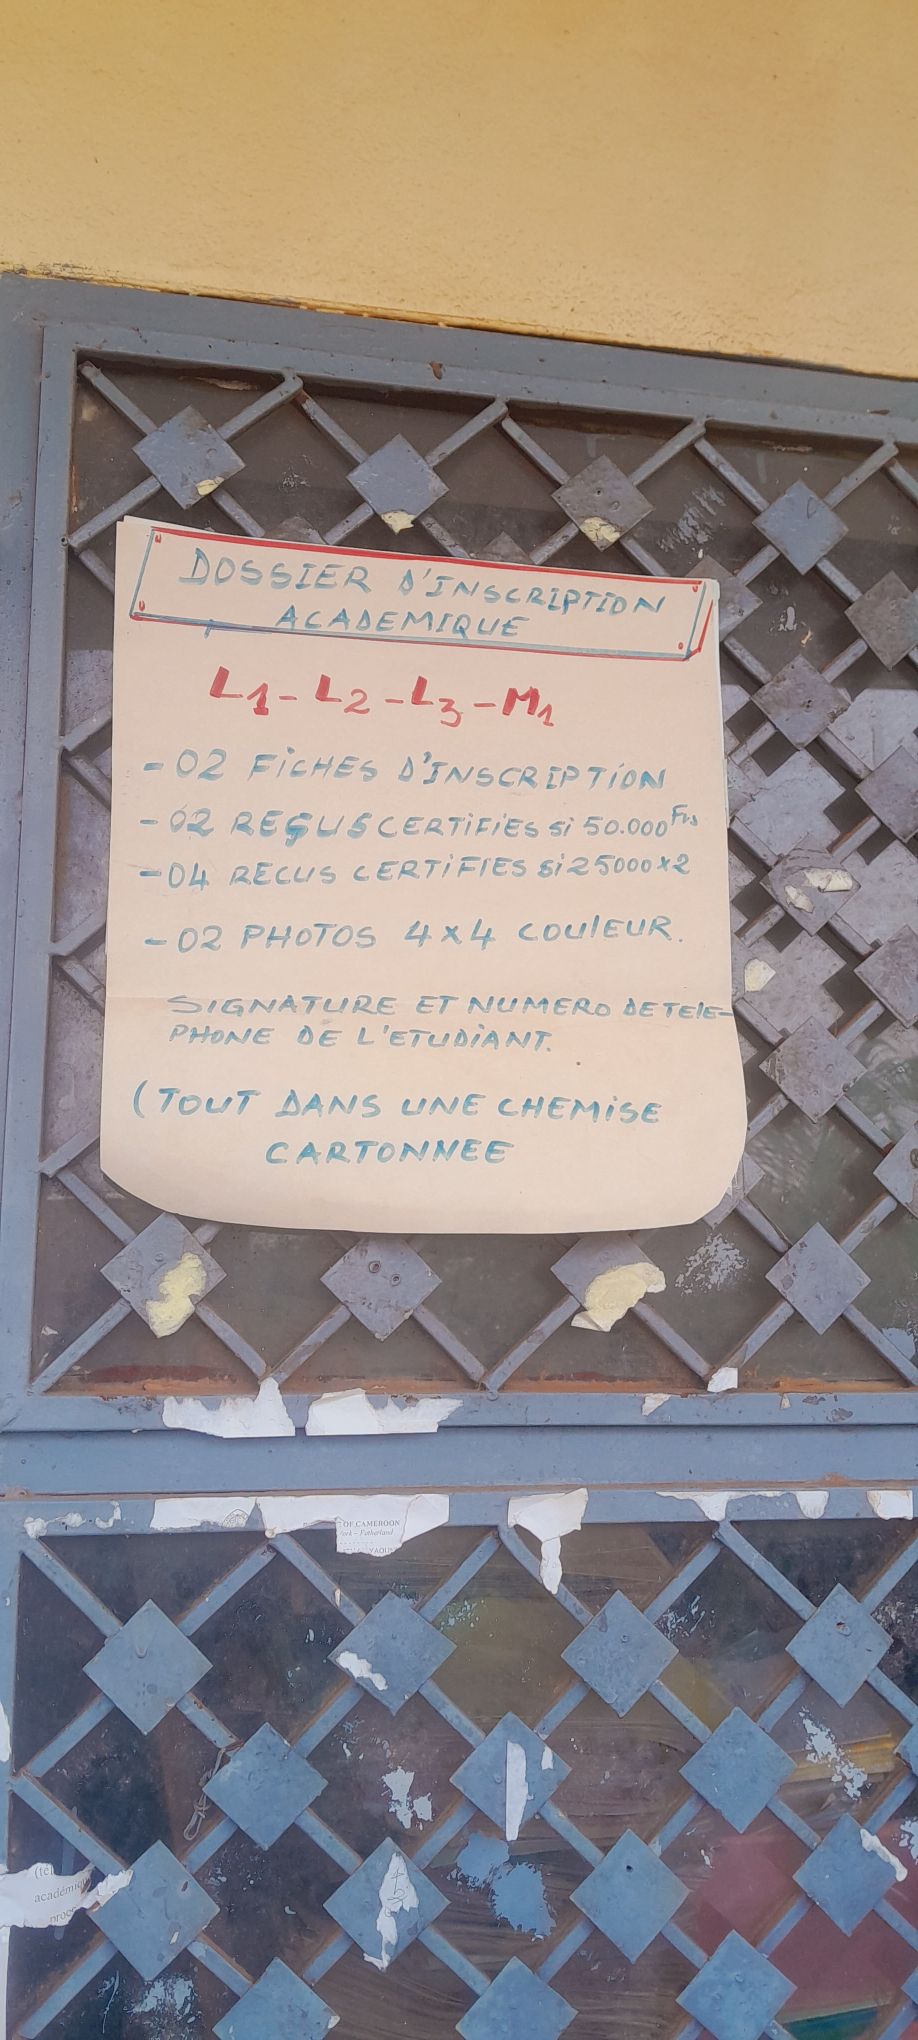 DOSSIER D'INSCRIPTION
ACADEMIQUE
L1 - L2 - L3 - M1
- 02 FICHES D'INSCRIPTION
- 02 REÇUS CERTIFIES si 50.000 Frs
- 04 RECUS CERTIFIES si 25000 x 2
- 02 PHOTOS 4 x 4 COULEUR.
SIGNATURE ET NUMERO DE TELE-
PHONE DE L'ETUDIANT.
(TOUT DANS UNE CHEMISE
CARTONNEE
OF CAMEROON
Fatherland